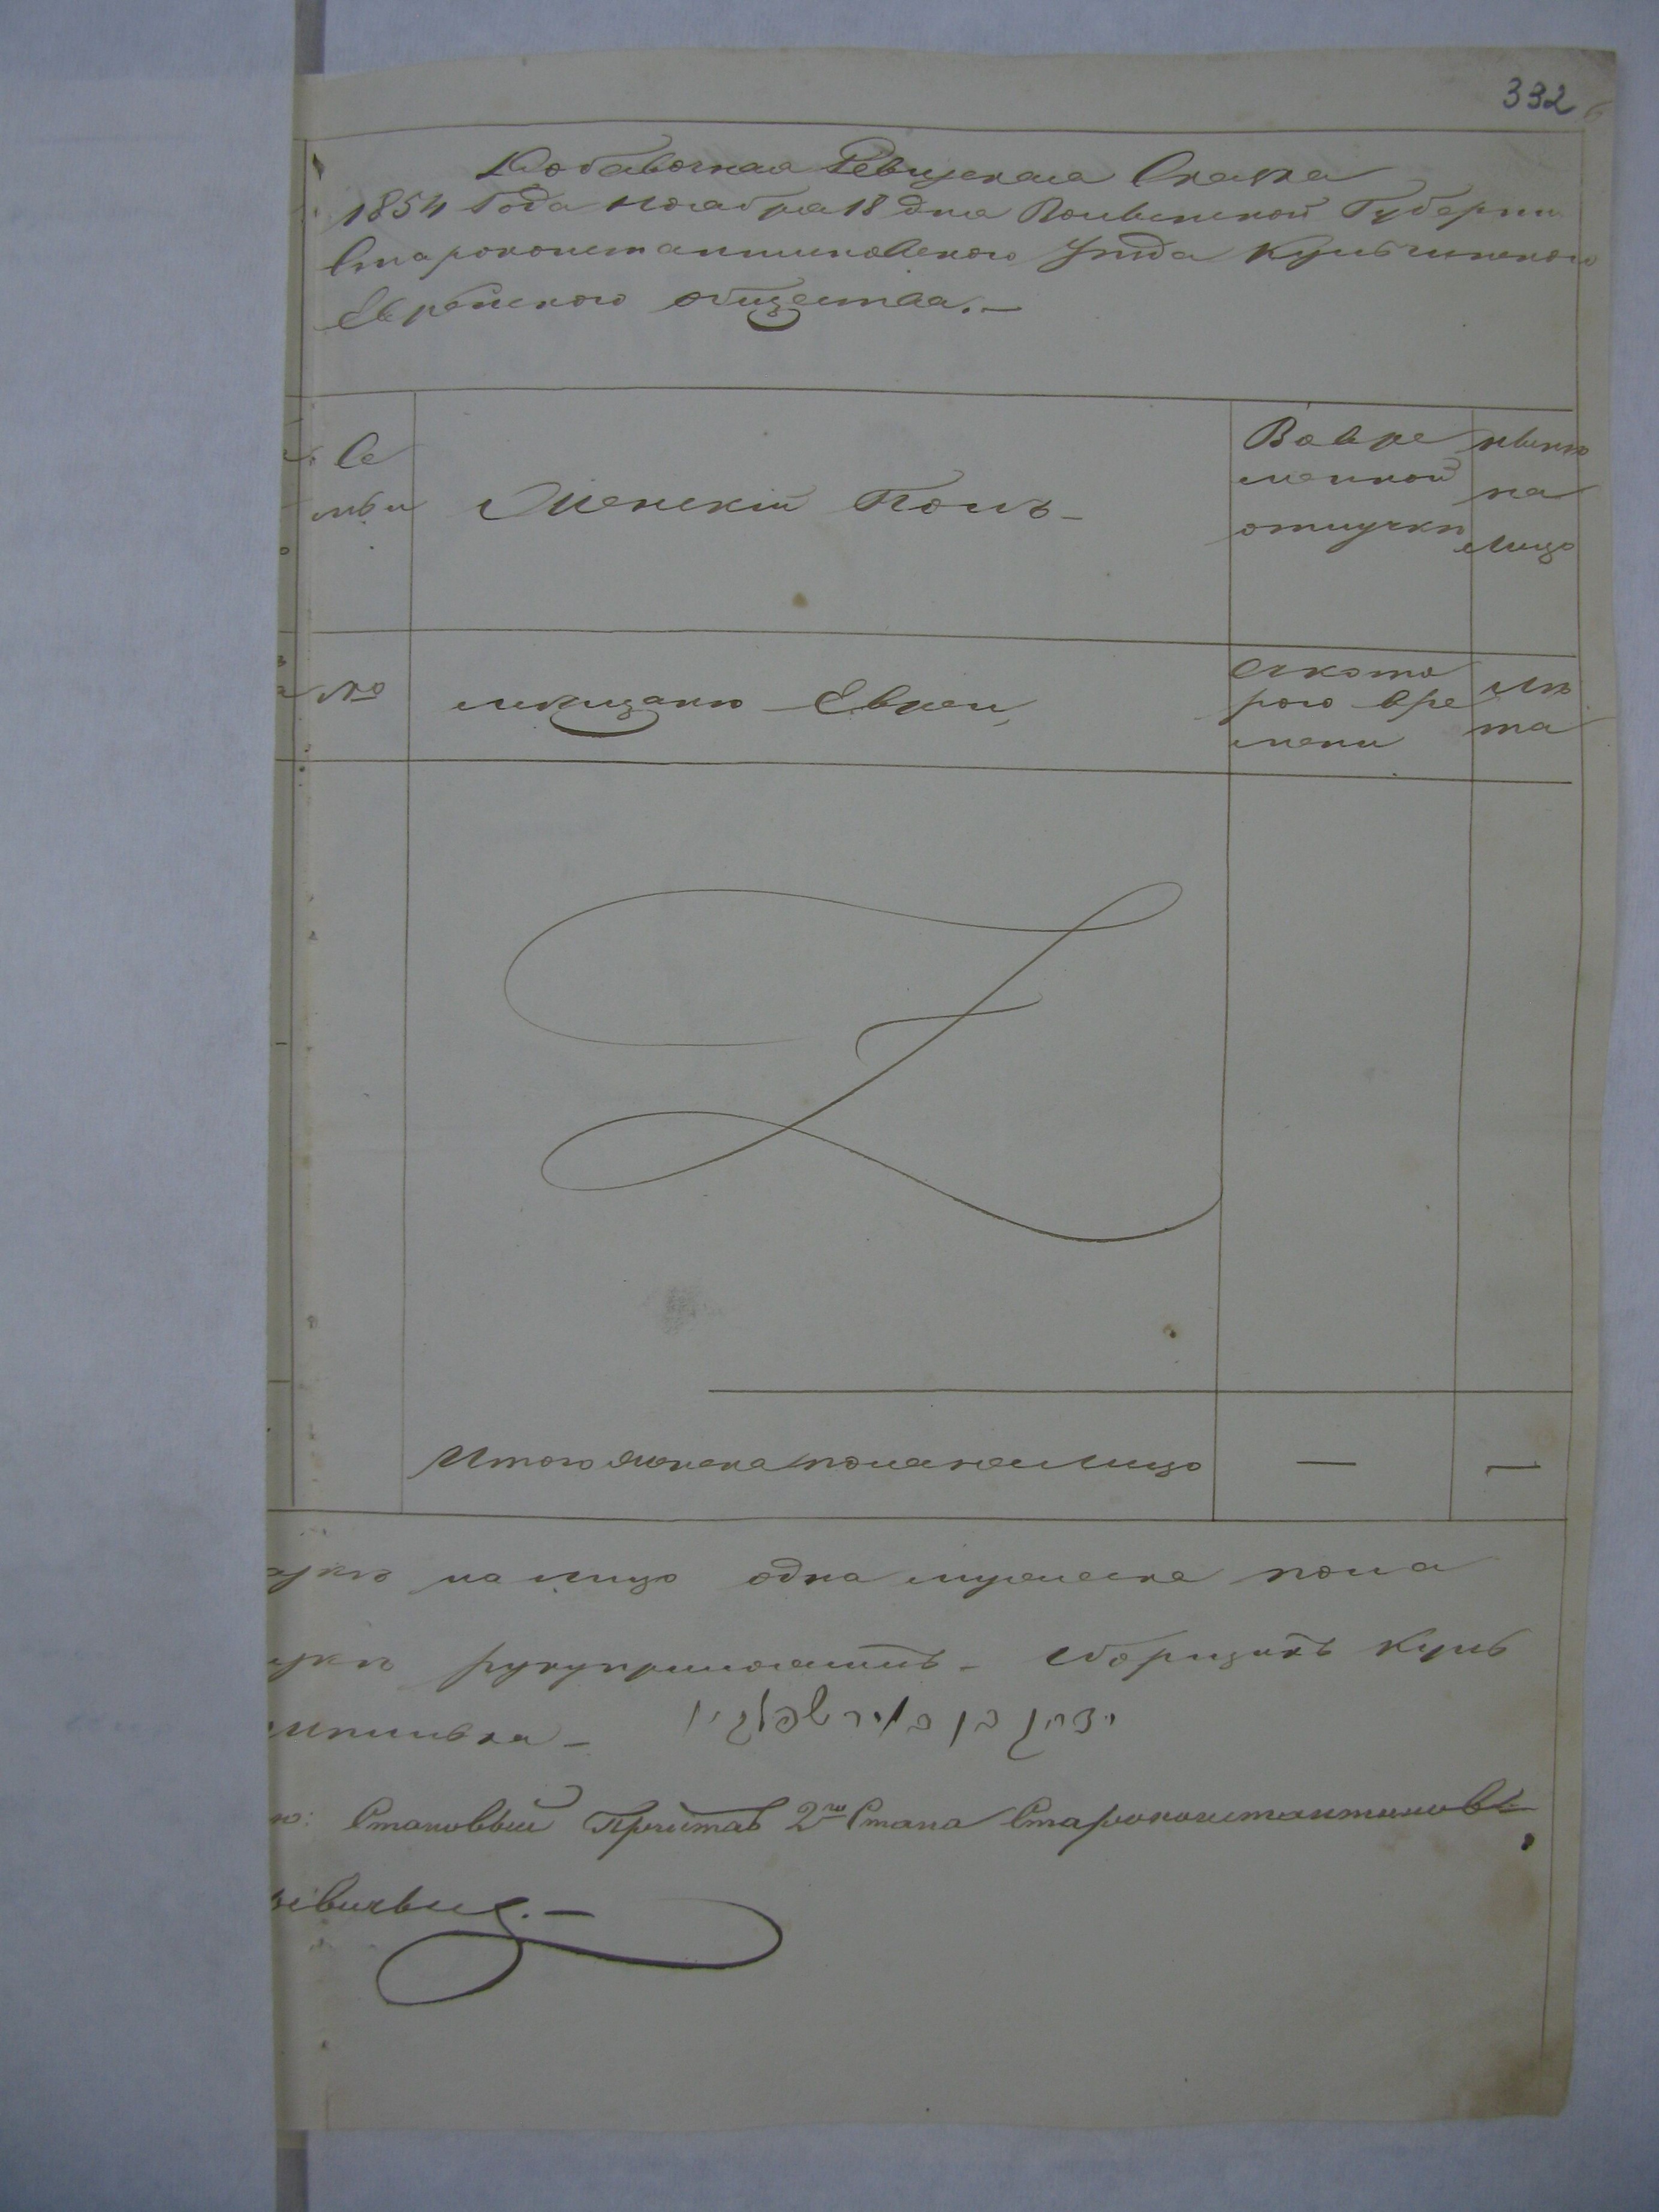 332
Добавочная Ревизская Сказка
1854 Года Ноября 18 дня Волынской Губернии
Староконстантиновского Уезда Кульчинского
Еврейского общества.—
Се
мьи
Женский Полъ—
Во вре
менной
отлучкѣ
нынѣ
на
лицо
№
мѣщане Евреи,
Съ кото
рого вре
мени
Лѣ
та
Итого женска пола на Лицо
—
—
на лицо одна мужеска пола
Сборщикъ Куль
Становый Приставъ 2го Стана Староконстантинов